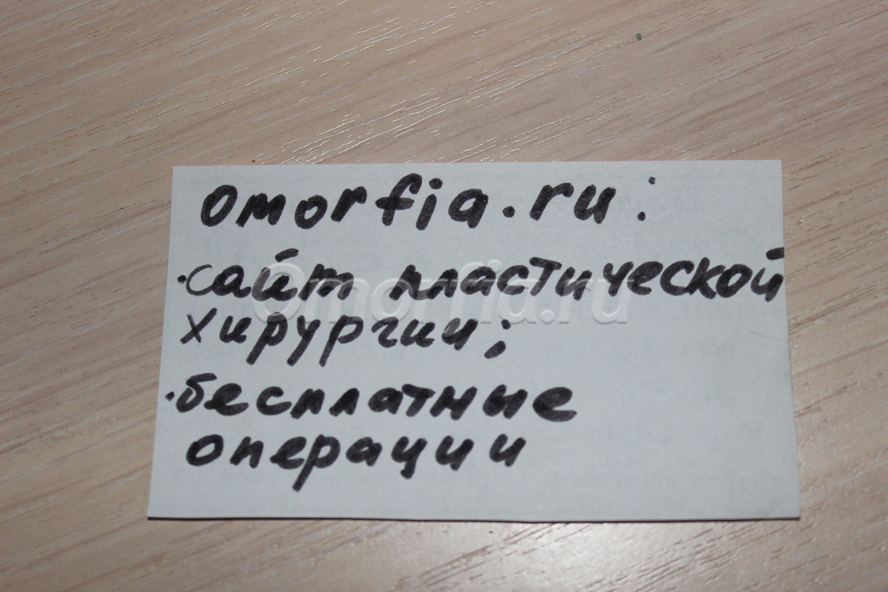 Omorfia.ru:
·сайт пластической
Omorfia.ru
хирургии;
·бесплатные
операции